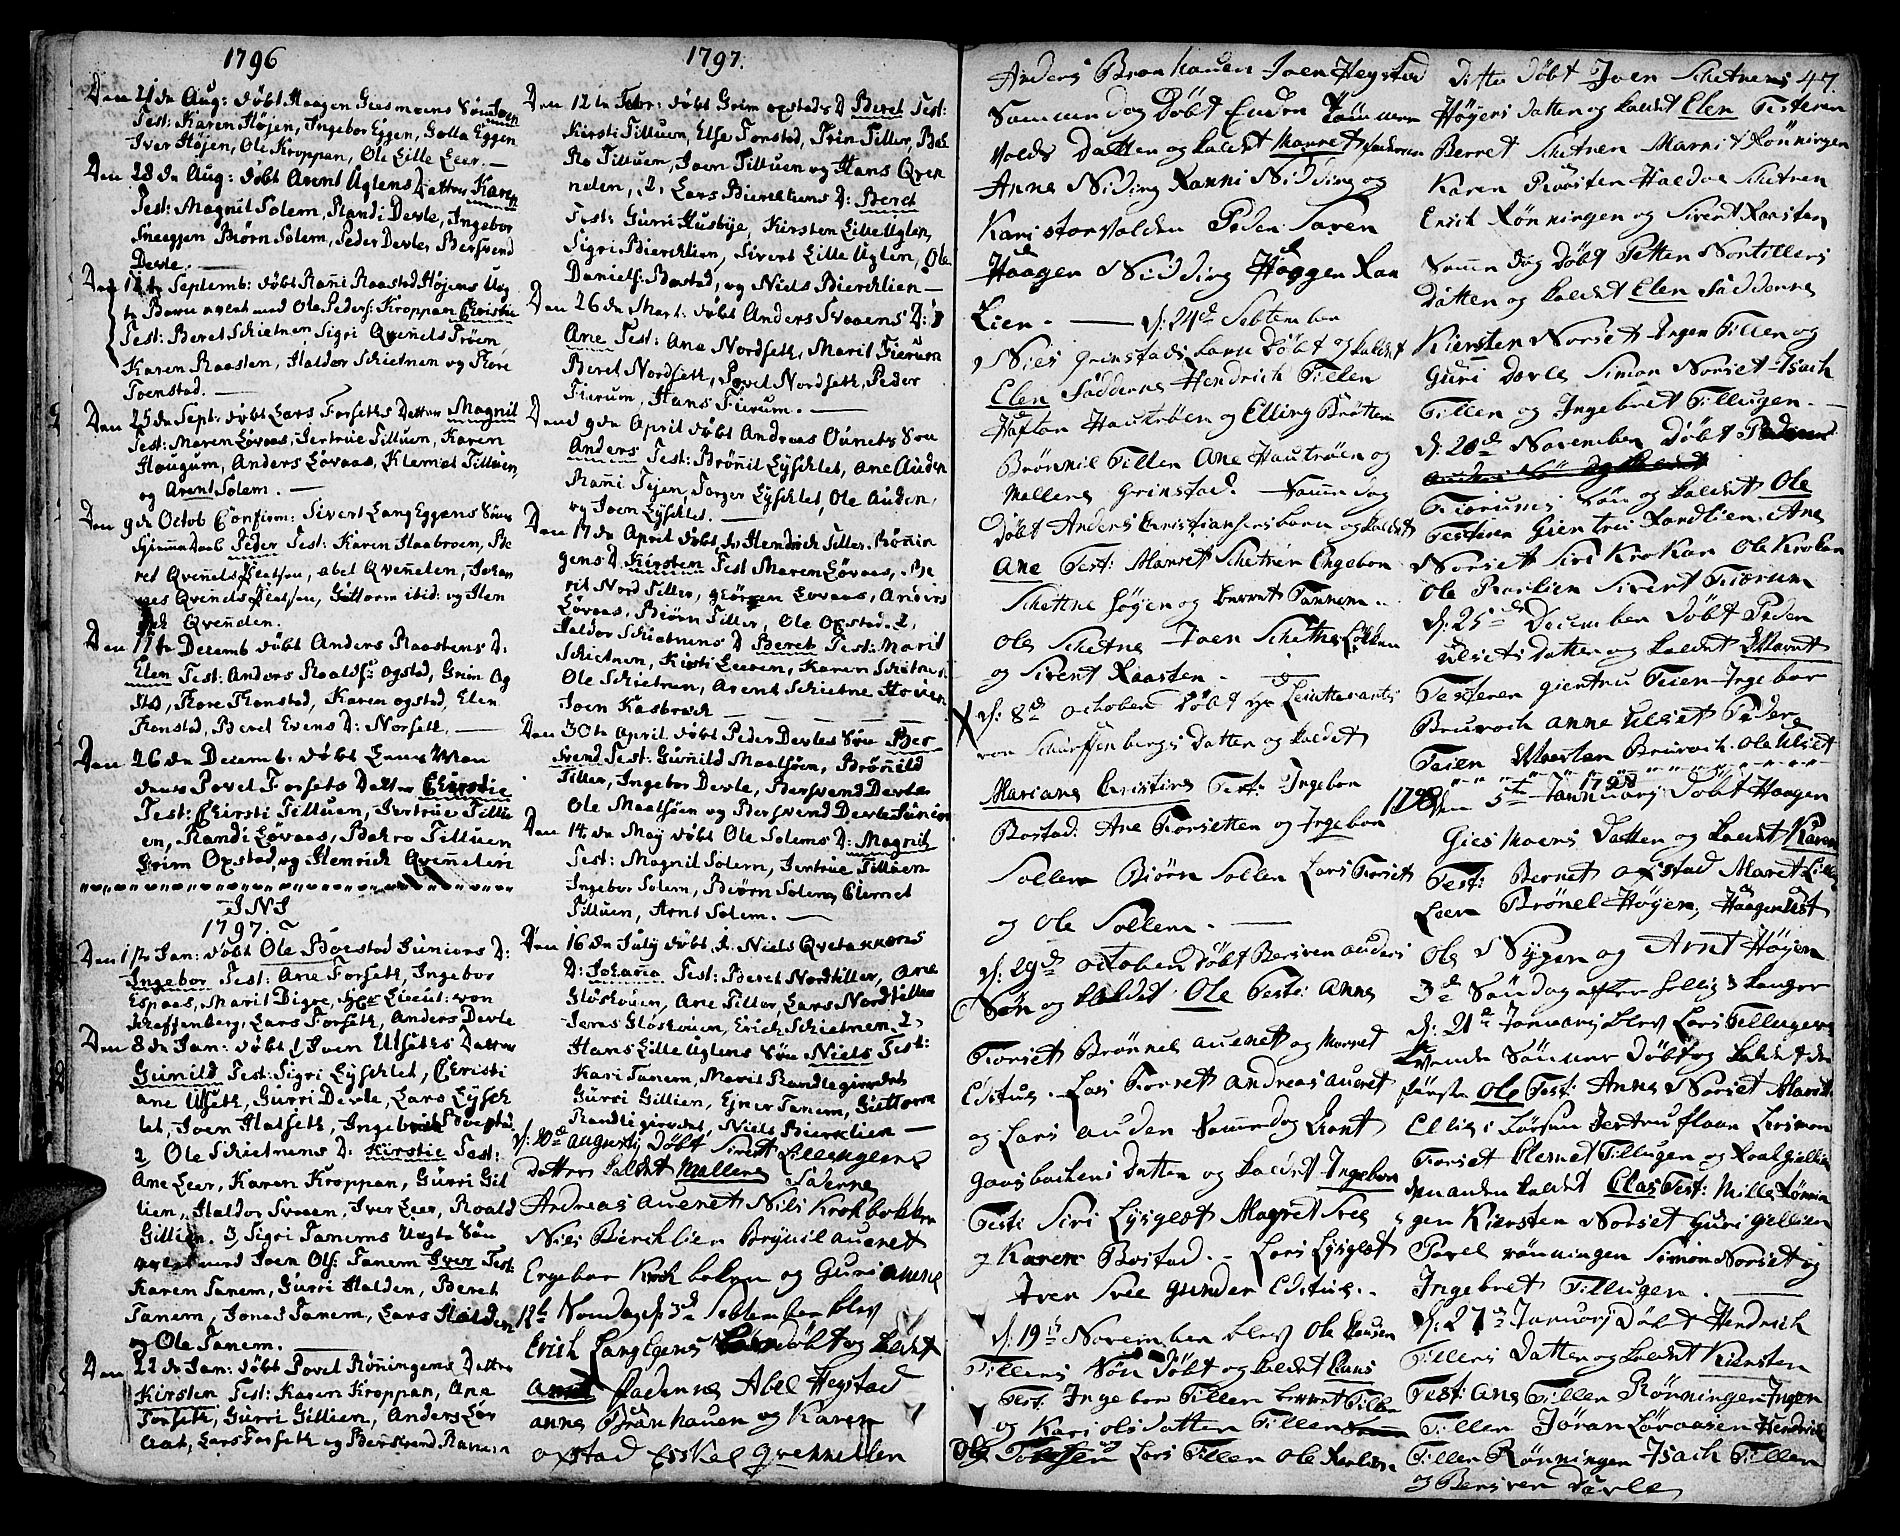 1796
Den 21de Aug: døbt Haagen Giesmoens Søn Joen
Test: Karen Højen, Ingebor Eggen, Golla Eggen
Iver Højen, Ole Kroppan, Ole Lille Leer.
Den 28de Aug: døbt Arent Uglens Datter Karen
Test: Magnil Solem, Randi Devle, Ingebor
Sneeggen Biørn Solem, Peder Devles Bersvend
Devle.
Septemb: døbt Rani Raastad Højens Uæg
te Barn avlet med Ole Peders: Kroppan Christie
Test: Beret Schietnen, Sigri Qvenels Trøen
Karen Raasten, Haldor Schietnen og Tore
Tonstad.
Den 25de Sept: døbt Lars Forseths Datter Magnil
Test: Maren Løvaas, Jertrue Tilluen, Karen
Haugum, Anders Løvaas, Klemet Tilluen,
og Arent Solem.
Den 9de Octob Confirm: Sivert Lang Eggens Søns
hjemmedaab Peder Test: Karen Haabroen, Be
ret Qvenels Pladsen, abel Qvenelen, Johan
nes Qvenels Pladsen, Guttorm ibid: og Hen
rich Qvenelen.
Den Decemb døbt Anders Raastens D:
Elen Test: Anders Roalds: Ogstad, Grim Og
stad, Tore Tonstad, Karen Ogstad, Elen
Tonstad, Beret Evens D: Norseth.
Den 26de Decemb: døbt
Povel Forsets Datter Christie
Test: Christi Tilluen, Jertrue Tillu
en, Randi Løvaas, Bakro Tilluen
Grim Oxstad, og Henrich Qvenelen
J.N.J.
1797.
Den 1te Jan: døbt Ole Boestad Juniors D:
Ingebor Test: Ane Forseth, Ingebor
Espaas, Marit Digre, Hr Lieut: von
Schaffenberg, Lars Forseth, Anders Devle
Den 8de Jan: døbt 1 Joen Ulseths Datter
Gunild Test: Sigri Lysehlet, Christi
ane Ulseth, Gurri Devle, Lars Lyseh
let, Joen Halseth, Ingebret Boestad
2 Ole Schietnens D: Kirstie Test:
Ane Leer, Karen Kroppan, Gurri Gil
lien, Haldor Svaaen, Iver Leer, Roald
Gillien. 3, Sigri Tanems Uægte Søn
avlet med Joen Ols: Tanem Iver Test:
Karen Tanem, Gurri Halden, Beret
Tanem, Jonas Tanem, Lars Halden
og Ole Tanem.
Den 22de Jan: døbt Povel Rønningens Datter
Kirsten Test: Karen Kroppan, Ane
Forseth, Gurri Gillien, Anders Løv
aas, Lars Forseth og Bersvend
1797.
Den 12te Febr: døbt Grim Oxstads D: Beret Test:
Kirsti Tilluem, Else Tonstad, Trin Tiller, Bak
Ro Tilluen, Joen Tilluen og Hans Qven
nelen, 2, Lars Biercktiens D: Beret
Test: Gurri Husbye, Kirsten Lille Uglen,
Sigri Biercklien, Sivert Lille Uglen, Ole
Daniels: Bostad, og Niels Biercklien
Den 26de Mart: døbt Anders Svaaens D:
Ane Test: Ane Nordseth, Marit Fierum
Beret Nordseth, Povel Nordseth, Peder
Fierum, Hans Fierum.
Dend 9de April døbt Andreas Ouenets Søn
Anders Test: Brønnil Lysehlet, Ane Auden
Rani Tejen, Torger Lysehlet, Ole Auden,
og Joen Lysehlet.
Den 17de April døbt 1 Hendrich Tiller Rønnin
gens D: Kirsten Test Maren Løvaas, Be
rit Nord Tiller, Jørgen Løvaas, Anders
Løvaas, Biørn Tiller, Ole Oxstad. 2,
Haldor Schietnens D Beret Test: Marit
Schietnen, Kirsti Leeren, Karen Schietnes
Ole Schietnen, Arent Schietne Hoven
Joen Kasbrach
Den 30te April døbt Peder Devles Søn Ber
svend Test: Gunnild Maalsøen, Brønnild
Tiller, Ingebor Devle, Bersvend Devles
Ole Maalsøen og Bersvend Devle Junior
Den 14de Maij døbt Ole Solems D: Magnil
Test: Magnil Solem, Jertrue Tilluen
Ingebor Solem, Biørn Solem, Clemet
Tilluen, Arnt Solem.
Den 16de July døbt 1. Niels Qvetannens
D: Johana Test: Beret Nordtiller, Ane
Gløskouen, Ane Tiller, Lars Nordtiller
Jens Gløskouen, Erick Schietnen. 2,
Hans Lille Uglens Søn Niels Test:
Kari Tanem, Marit Randlegierdet
Gurri Gillien, Ejner Tanem, Guttorm
Randligierdet, Niels Biercklien
d: 20de augustij døbt Sivert Lilleuglens
datter kaldet Mallena Faderne
Andreas Auenet Nils Krokbakken
Nils Bierchlien Brynil Auenet
Engebor Krokbaken og Guri Auenet
12te Søndag d: 3de September blev
Erich Langegens døbt og kaldet
Arnt Fadernes Abel Hegstad
anne Brönhauen og Karen
oxstad Eskel Grennellen
Anders Bronhauen Joen Hegstad
Samme dag døbt Enden Tømmer
volds Datter og kaldet Marret Fadderen
Anne Nidding Ranni Nidding og
Kari Storvolden Peder Saxen
Haagen Nidding Haagen Ran
Lien. d: 24de September
Niels Grinstads barn døbt og kaldet
Elen Fadderne Hendrich Tillen
Haftan Hautrøen og Elling Brøtten
Brønnil Tillen Ane Hautrøen og
Mallena Grinstad. Samme dag
døbt Anders Christiansens barn og kaldet
Ane Test: Marret Schetnen Engebor
Schetne Høyen og berret Tannem
Ole Schetne Joen Schetne Løkken
og Sivert Raasten.
d: 8de october døbt hr Leiuttenantes
von Schurffenbergs datter og kaldet
Mariane Christine Test: Ingebor
Bostad: Ane Forsetten og Ingebor
Sollem Biørn Sollem Lars Forset
og Ole Sollem.
d: 29de october døbt Bersven auders
Søn og kaldet Ole Test: Anne
Forset Brønnel Auenet og Marret
Editus. Lars Forset Andreas Aunet
og Lars Auden Samme dag Arnt
Gaasbackens datter og kaldet Ingebor
Test: Siri Lysglet Magret Svee
og Karen Bostad. Lars Lysglet
Iver Svee Gunder Editus.
d: 19de November blev Ole Hansen
Tillers Søn døbt og kaldet Claus
Test: Ingebor Tillen berret Tillen
og Kari olsdatter Tillen
Ole Lars Tillen Ole Rønlien
Ditto døbt Joen Schetnens 47.
Høyers datter og kaldet Elen Testeren
Berret Schetnen Marrit Rønningen
Karen Raasten Haldor Schetnen
Erich Rønningen og Sivert Raasten
Samme dag døbt Petter Nortillers
datter og kaldet Elen Fadderne
Kiersten Norset Ingen Tillen og
Guri Dovle Simon Norset Isach
Tillen og Ingebret Tillugen.
d: 20de November døbt Peder
Fiørums Søn og kaldet Ole
Testeren Giertru Randlien Ane
Norset Siri KroKan Ole Krokan
Ole Ranlien Sivert Fiærum
d: 25de December døbt Peder
Ulsets datter og kaldet Maret
Testeren Giertru Teien Ingebor
Bruroch anne Ulset Peder
Teien Morten Bruroch. Ole Ulset
1798
1798 Den 5te Januarij døbt Haagen
Giesmoens datter og kaldet Karen
Test: Bernet Oxstad Maret Lille
Leer Brønel Høyen, Haagen
Ole Nygen og Arnt Høyen
3de Søndag efter hellig 3 konger
d: 21de Januarij blev Lars Tillugens
tvende Sønner døbt og kaldet den
første Ole Test: Anne Norset Marit
Ellis Jertru Simon
Forset Clemet Tillugen og Roal Gillien
den anden kaldet Clas Test: Mille Rønnin
gen Kiersten Norset Guri Gillien
Povel rønningen Simon Norset og
Ingebret Tillugen.
d: 27de Januarij døbt Hendrich
Tillers Datter og kaldet Kiersten
Test: Ane Tillen Rønningen Ingen
Tillen Jøran Løvaasen Hendrich
Tillen Rønningen Isach Tillen
og Bersven Dovle